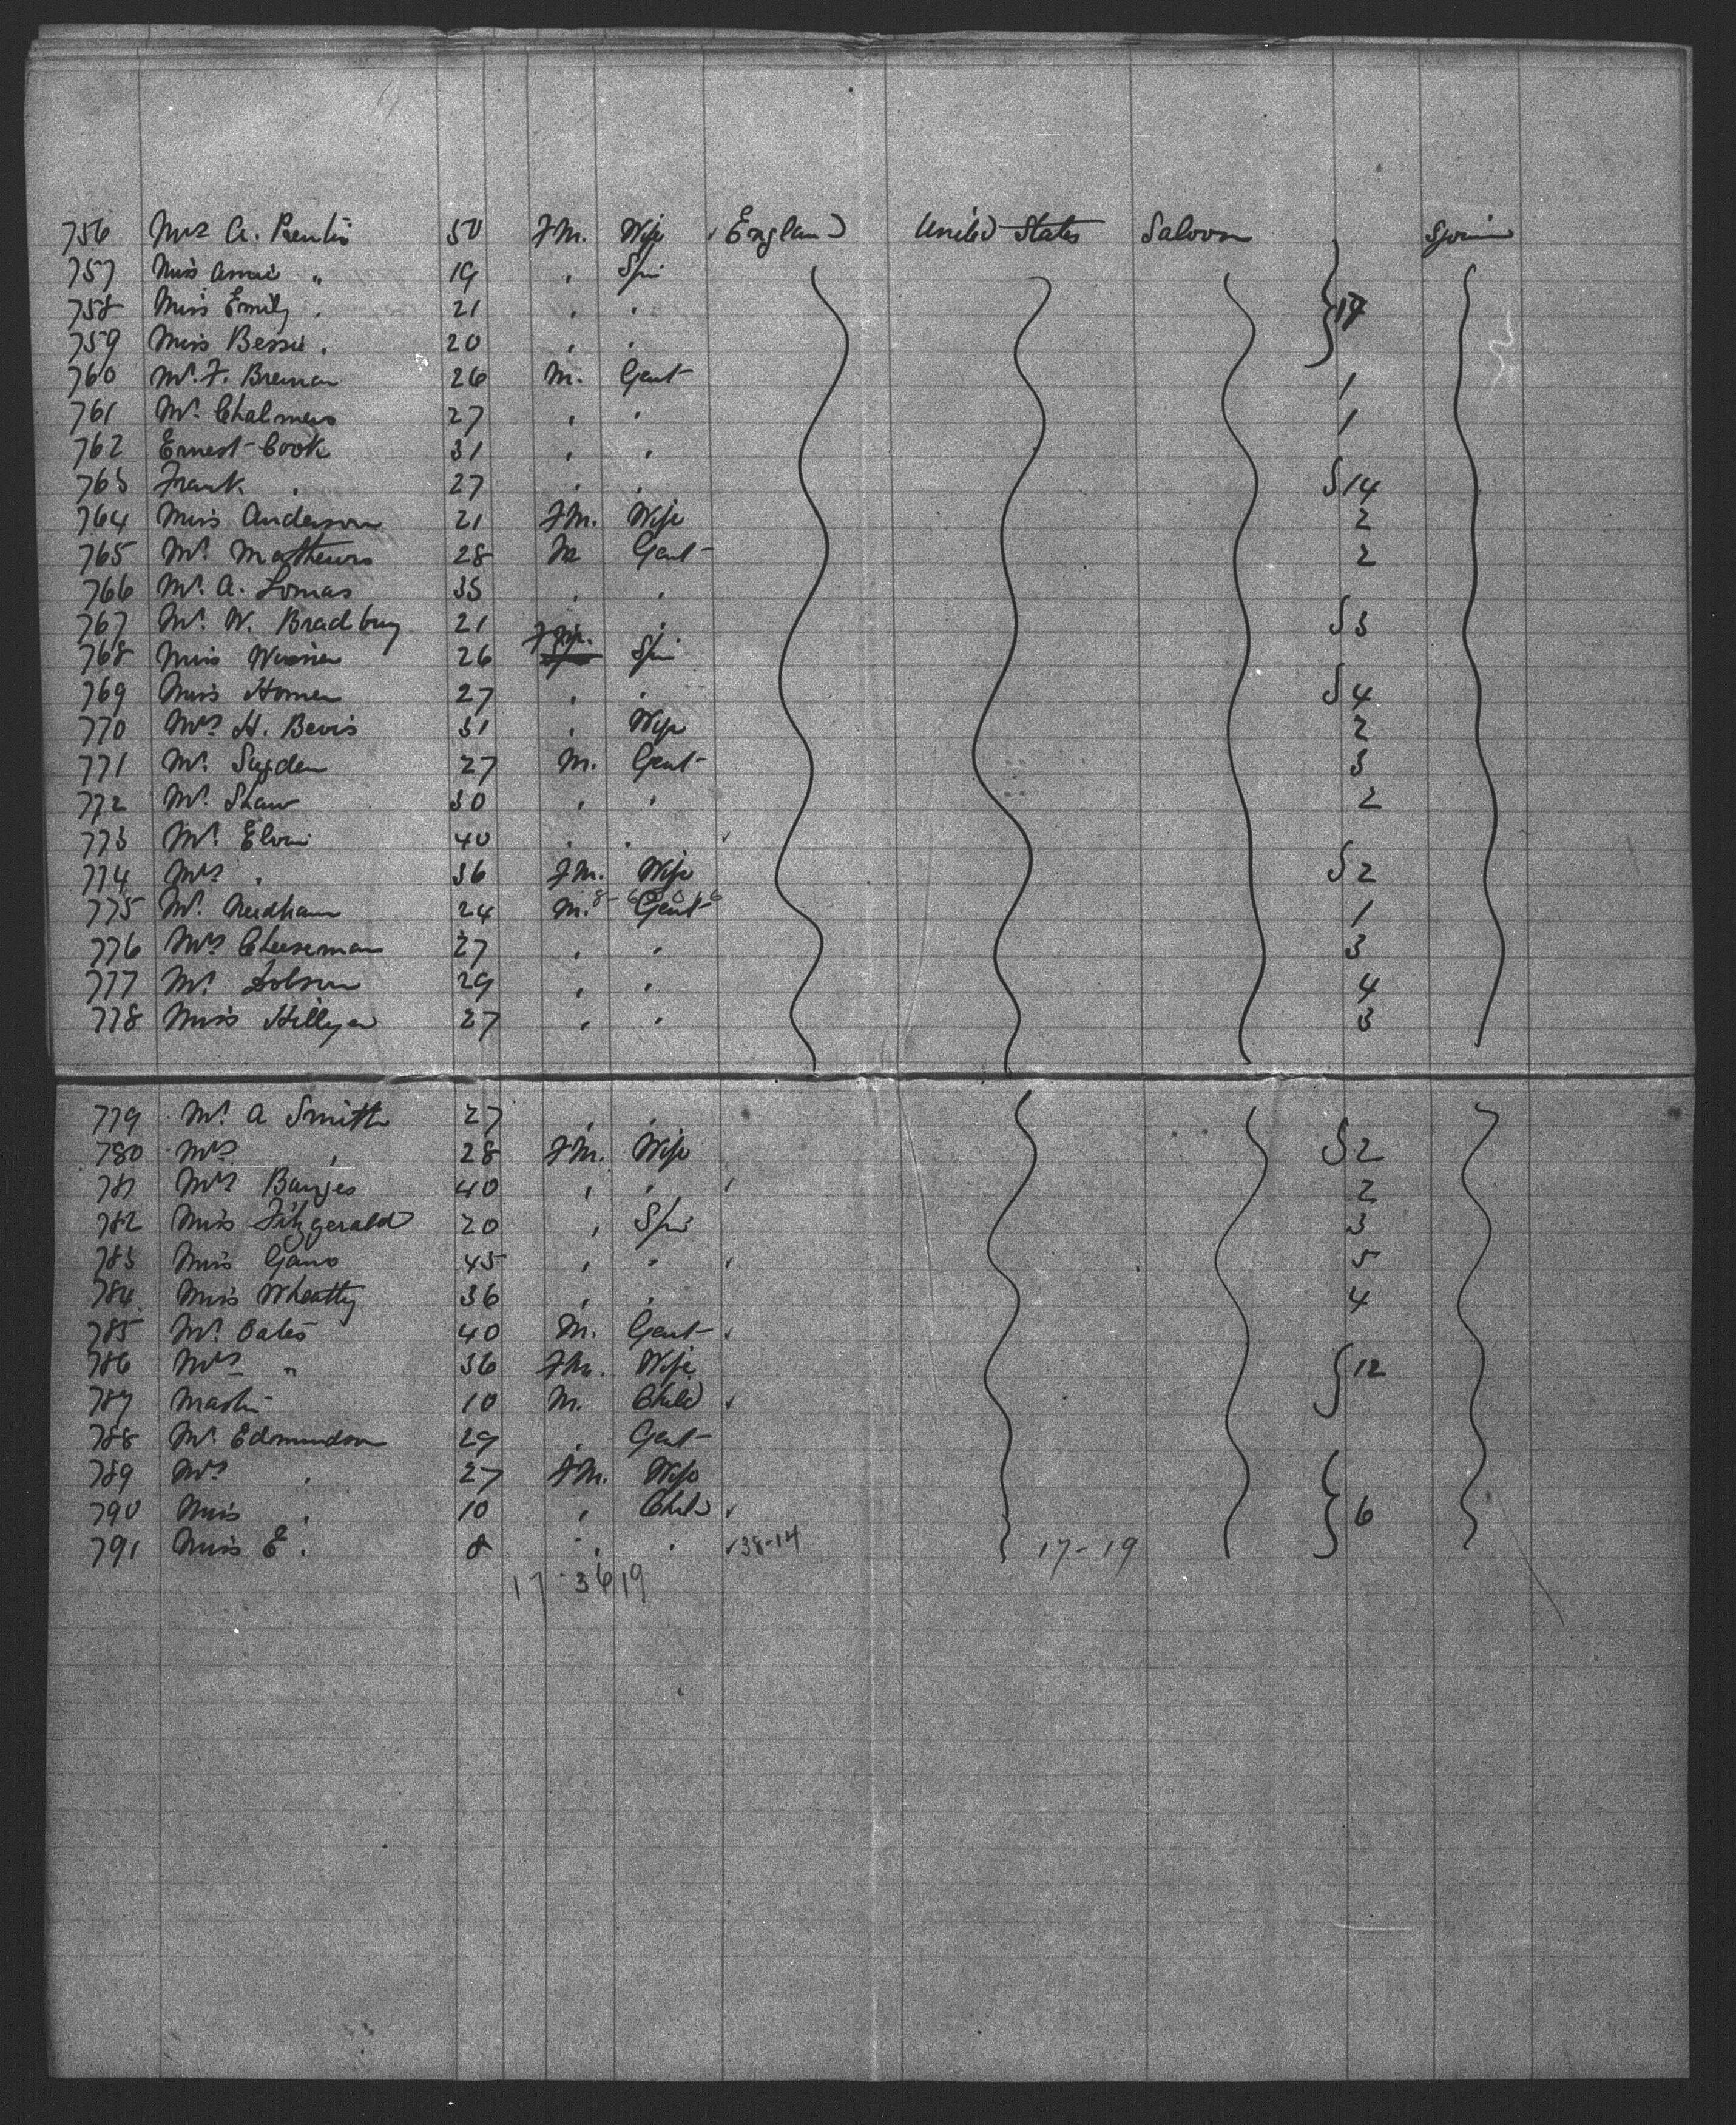 756 Mrs A. Prentis 50 Fm. Wife England United States Saloon Sjorin
757 Miss Annie " 19 , Spi
758 Miss Emily , 21 , ,
759 Miss Bessie , 20 , , } 17
760 Mr. F. Brennan 26 M. Gent 1
761 Mr. Chalmers 27 , , 1
762 Ernest Cook 31 , ,
763 Frank , 27 , , 14
764 Miss Anderson 21 Fm. Wife 2
765 Mr. Mathews 28 M Gent 2
766 Mr. A. Lomas 35 , ,
767 Mr. W. Bradbury 21 , 3
768 Miss 26 Fm. Spi
769 Miss Homer 27 , , 4
770 Mrs H. Bevis 31 , Wife 2
771 Mr. Sugden 27 M. Gent 3
772 Mr. Shaw 30 , , 2
773 Mr. Elvin 40 , ,
774 Mrs , 36 Fm. Wife 2
775 Mr. Needham 24 M. Gent 1
776 Mrs Cheeseman 27 , , 3
777 Mr. Dobson 29 , , 4
778 Miss Hillyer 27 , , 3
779 Mr. A Smith 27 , ,
780 Mrs , 28 Fm. Wife 2
781 Mrs Banjes 40 , , 2
782 Miss Fitzgerald 20 , Spi 3
783 Miss Gano 45 , , 5
784 Miss Wheatly 36 , , 4
785 Mr. Oates 40 M. Gent
786 Mrs " 36 Fm. Wife 12
787 Master 10 M. Child
788 Mr. Edmundson 29 , Gent
789 Mrs , 27 Fm. Wife
790 Miss , 10 , Child } 6
791 Miss E , 8 , , 38-14 17-19
17 36 19